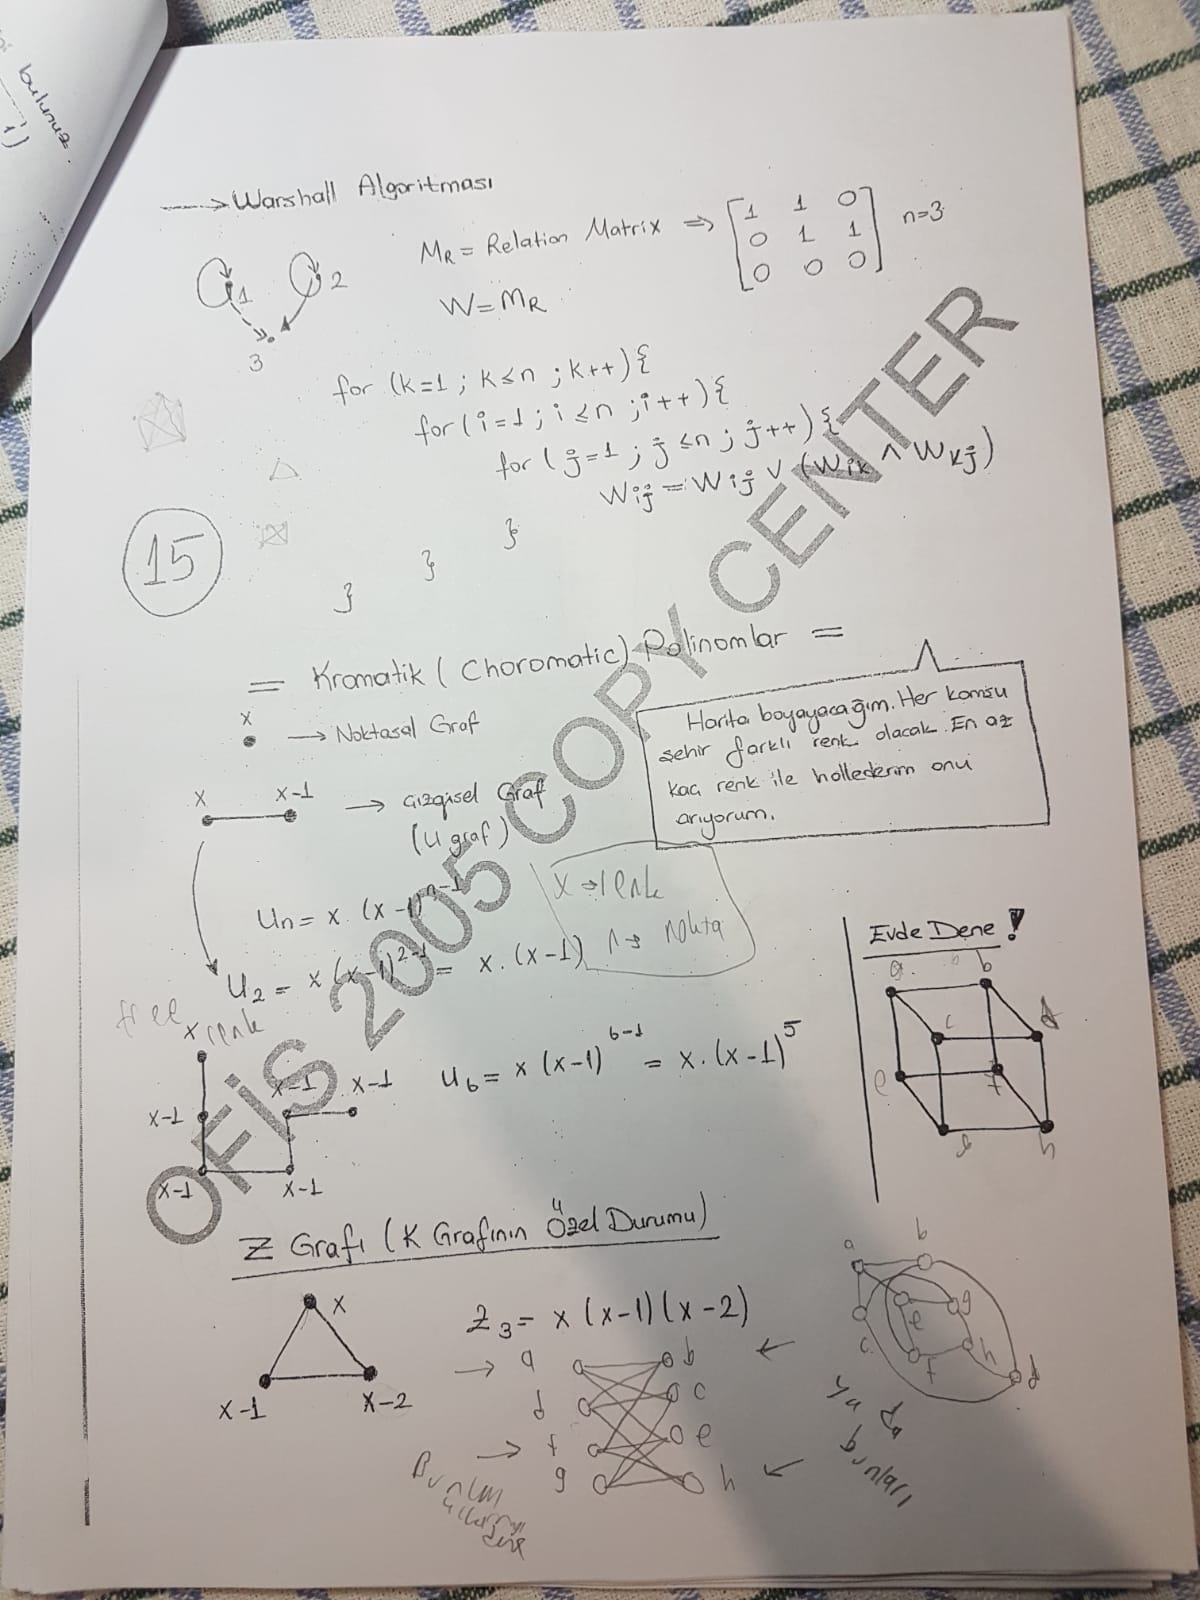 bulunuz.
→ Warshall Algoritması
1 2 3
MR = Relation Matrix ⇒ [1 1 0
0 1 1
0 0 0] n=3
W=MR
for (k=1 ; k≤n ; k++) {
for (i=1 ; i≤n ; i++) {
for (j=1 ; j≤n ; j++) {
Wij = Wij ∨ (Wik ∧ Wkj)
}
}
}
15
= Kromatik (Choromatic) Polinomlar =
x
→ Noktasal Graf
Harita boyayacağım. Her komsu
şehir farklı renk olacak. En az
kaç renk ile hallederim onu
arıyorum.
x x-1 → Çizgisel Graf
(U graf)
Un = x. (x-1)^n-1
x → renk
n → nokta
U2 = x (x-1)^2-1 = x. (x-1)
free
x renk
x-1
x-1
x-1
x-1 x-1
U6 = x (x-1)^6-1 = x. (x-1)^5
Evde Dene !
a b
c d
e f
g h
Z Grafı (K Grafının Özel Durumu)
x
x-1 x-2
Z3 = x (x-1) (x-2)
→ a b ←
d c
→ f e
g h ←
a b
c e g
f h d
ya da
bunları